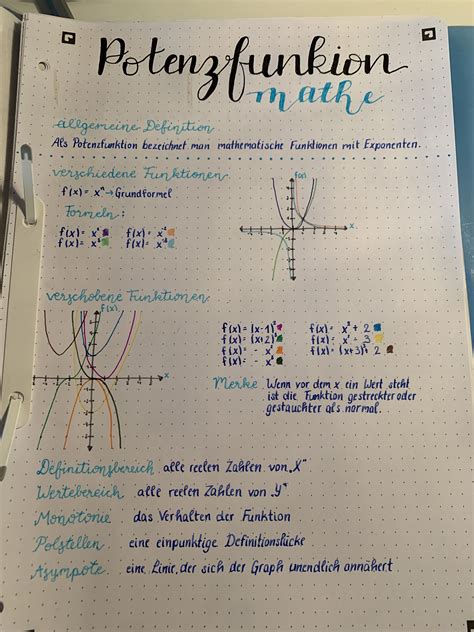 Potenzfunkion
mathe
allgemeine Definition
Als Potenzfunktion bezeichnet man mathematische Funktionen mit Exponenten.
verschiedene Funktionen
f(x) = xⁿ → Grundformel
Formeln:
f(x) = x
f(x) = x
f(x) = x
f(x) = x
f(x)
x
verschobene Funktionen
f(x)
x
f(x) = (x-1)
f(x) = (x+2)
f(x) = - x
f(x) = - x
f(x) = x + 2
f(x) = x - 3
f(x) = (x+3) 2
Merke Wenn vor dem x ein Wert steht
ist die Funktion gestreckter oder
gestauchter als normal.
Definitionsbereich alle reelen Zahlen von „X"
Wertebereich alle reelen Zahlen von „Y"
Monotonie das Verhalten der Funktion
Polstellen eine einpunktige Definitionslücke
Asympote eine Linie, der sich der Graph unendlich annähert